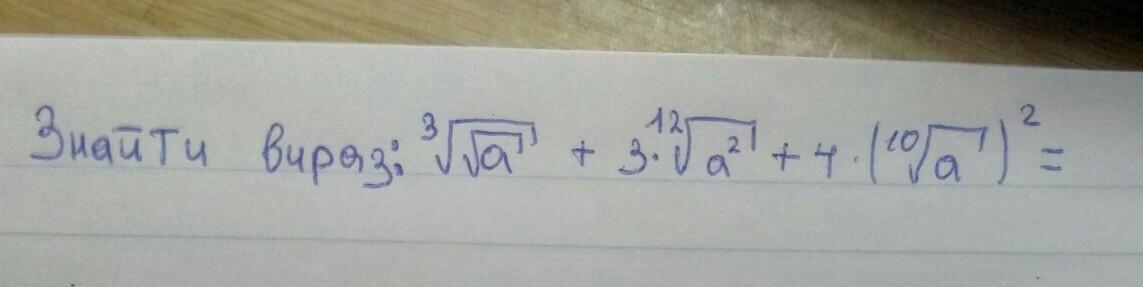 Знайти вираз: ∛(√a) + 3·¹²√(a²) + 4·(¹⁰√a)² =